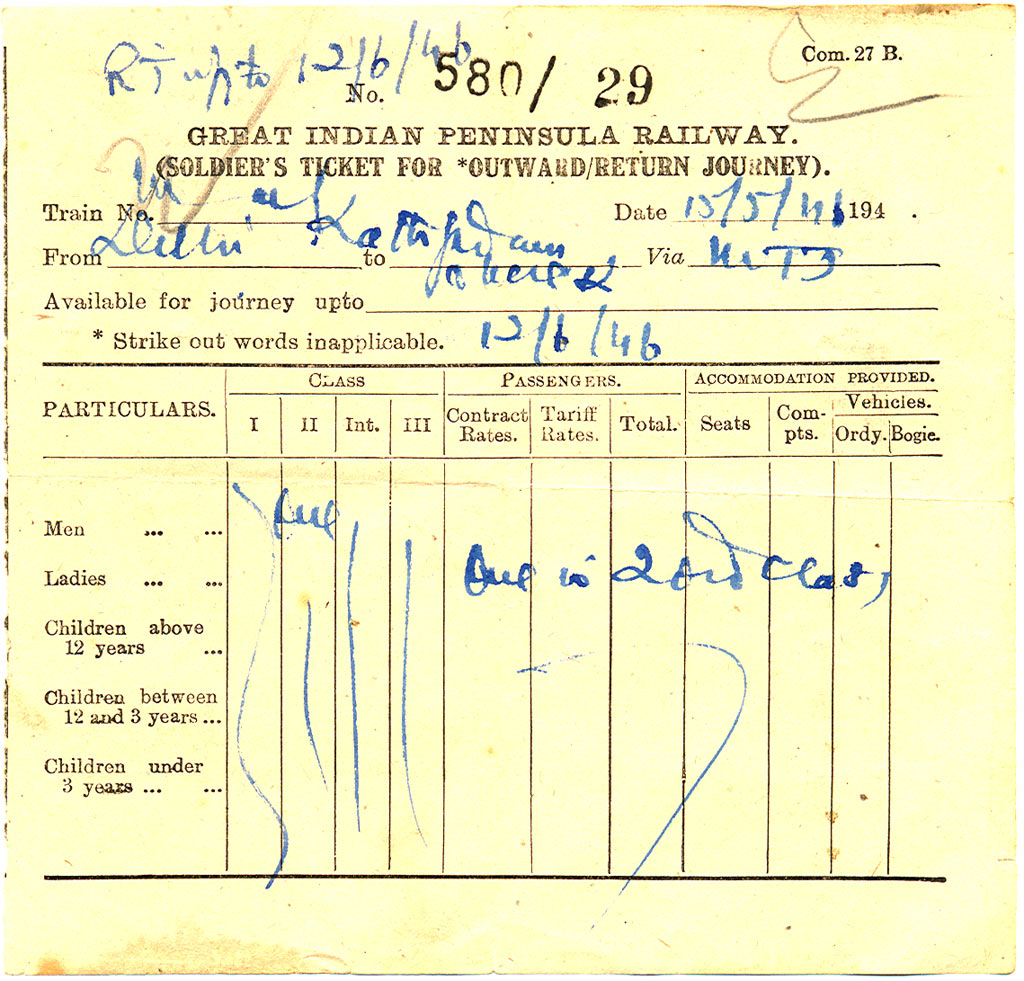 R T upto 12/6/46
Com. 27 B.
No. 580/ 29
GREAT INDIAN PENINSULA RAILWAY.
(SOLDIER'S TICKET FOR *OUTWARD/RETURN JOURNEY).
Train No. Date 15/5/46 194 .
From Delhi to Kathgodam Via MTJ
& back
Available for journey upto
* Strike out words inapplicable. 12/6/46
PARTICULARS. CLASS PASSENGERS. ACCOMMODATION PROVIDED.
I II Int. III Contract Rates. Tariff Rates. Total. Seats Com-pts. Vehicles.
Ordy. Bogie.
Men ... ... One
Ladies ... ... One in 2nd Class
Children above
12 years ...
Children between
12 and 3 years ...
Children under
3 years ... ...